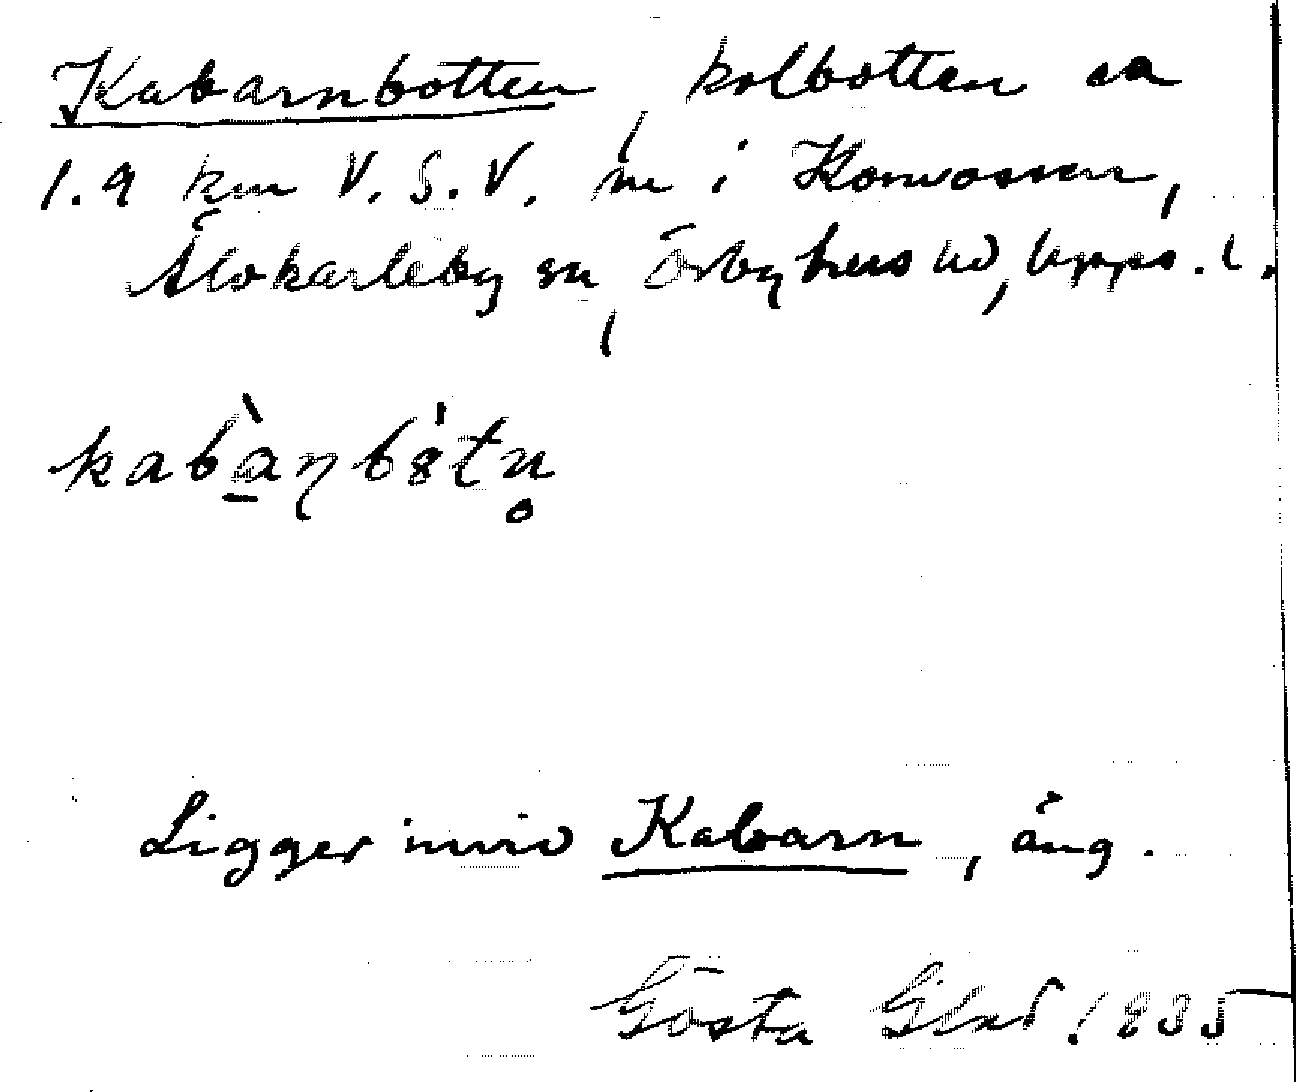 Kabarnbotten, kolbotten ca
1.9 km V.S.V. m i Konvossen,
Älvkarleby sn, Örbyhus hd, Upps. l.
kabànbòtn̥
Ligger invid Kabarn, äng.
Gösta